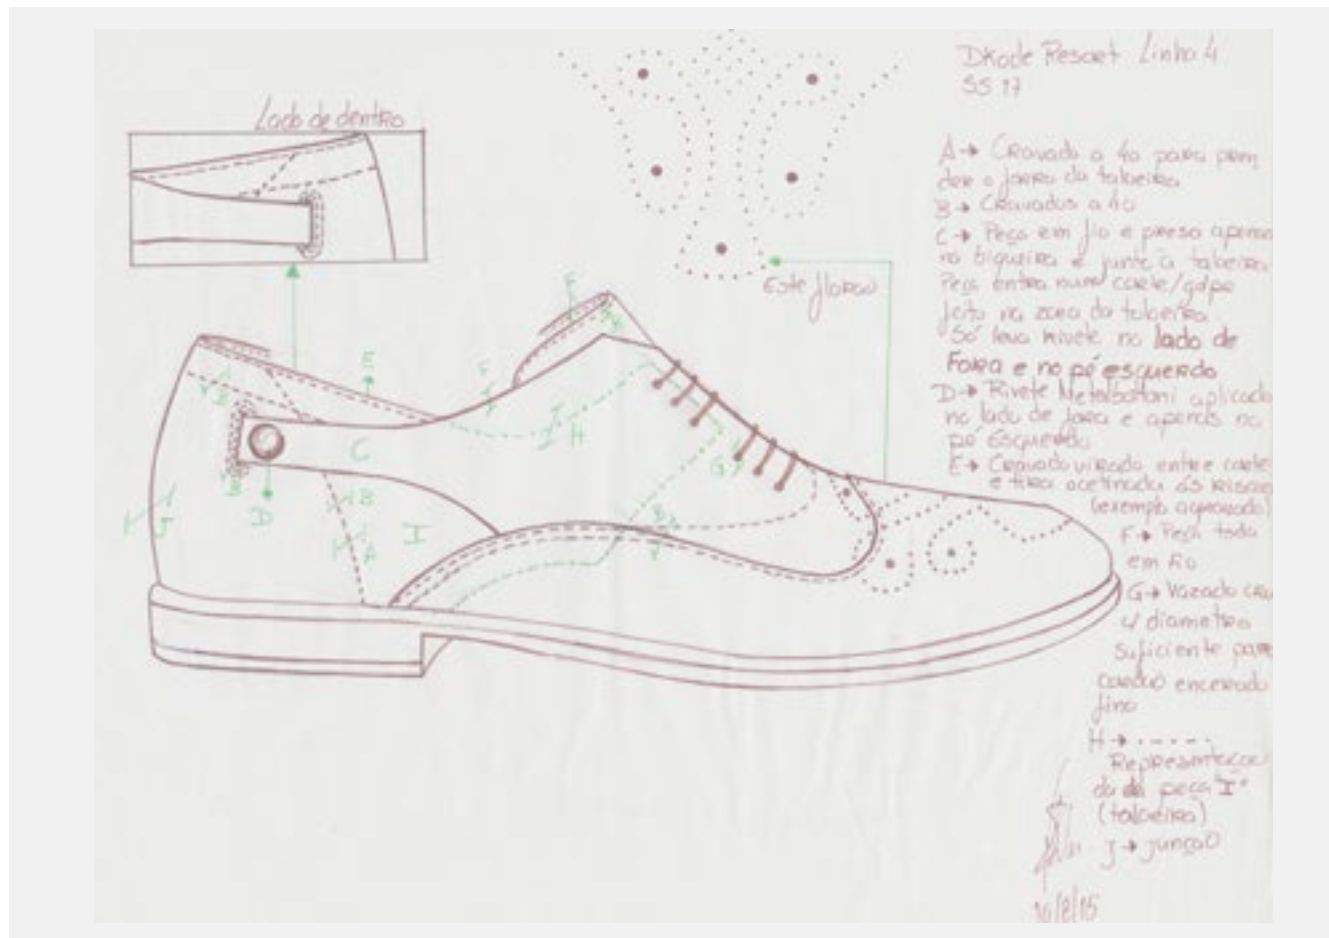 Dkode Resort Linha 4
SS 17
Lado de dentro
Este florão
A → Cravado a 40 para pren
der o forro da taloeira
B → Cravados a 40
C → Peça em fio e preso apenas
na biqueira e junto à taloeira.
Peça entra num corte/golpe
feito na zona da taloeira.
Só leva rivete no lado de
Fora e no pé esquerdo
D → Rivete Metalbottoni aplicado
no lado de fora e apenas no
pé esquerdo
E → Cravado virado entre corte
e tira acetinada ás riscas
(exemplo agrafado)
F → Peça toda
em fio
G → Vazado
c/ diametro
suficiente para
cordão encerado
fino
H → -----
Representação
da peça "I"
(taloeira)
J → junção
E
F
F
H
C
G
B
B
B
B
D
A
I
J